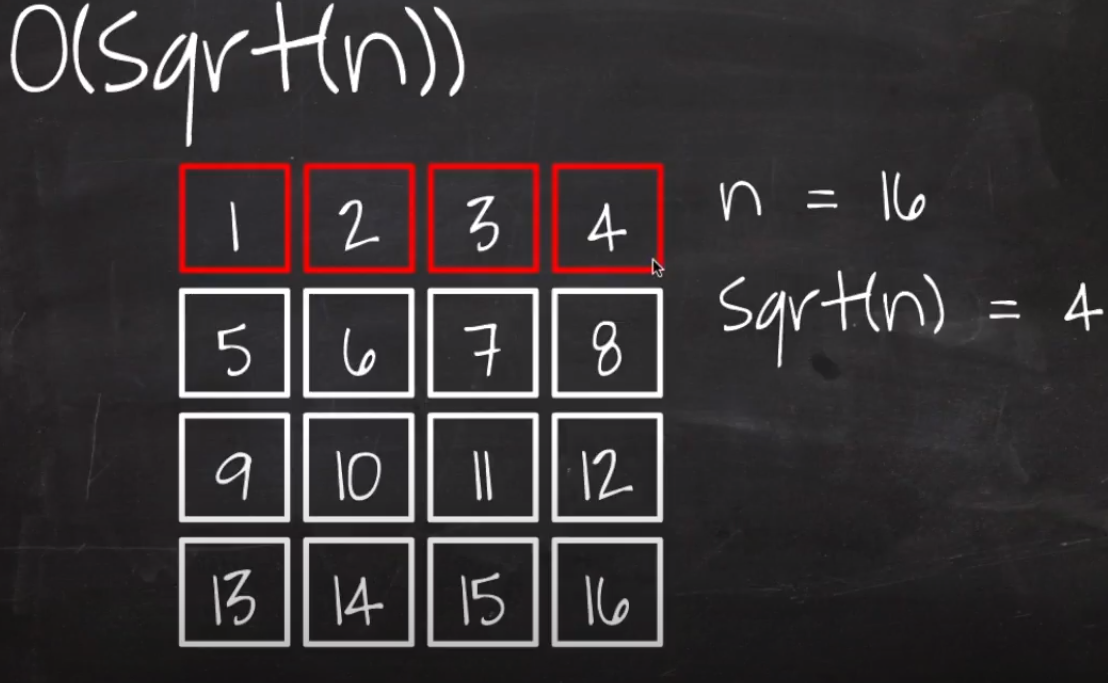 O(sqrt(n))
1 2 3 4
n = 16
5 6 7 8
sqrt(n) = 4
9 10 11 12
13 14 15 16